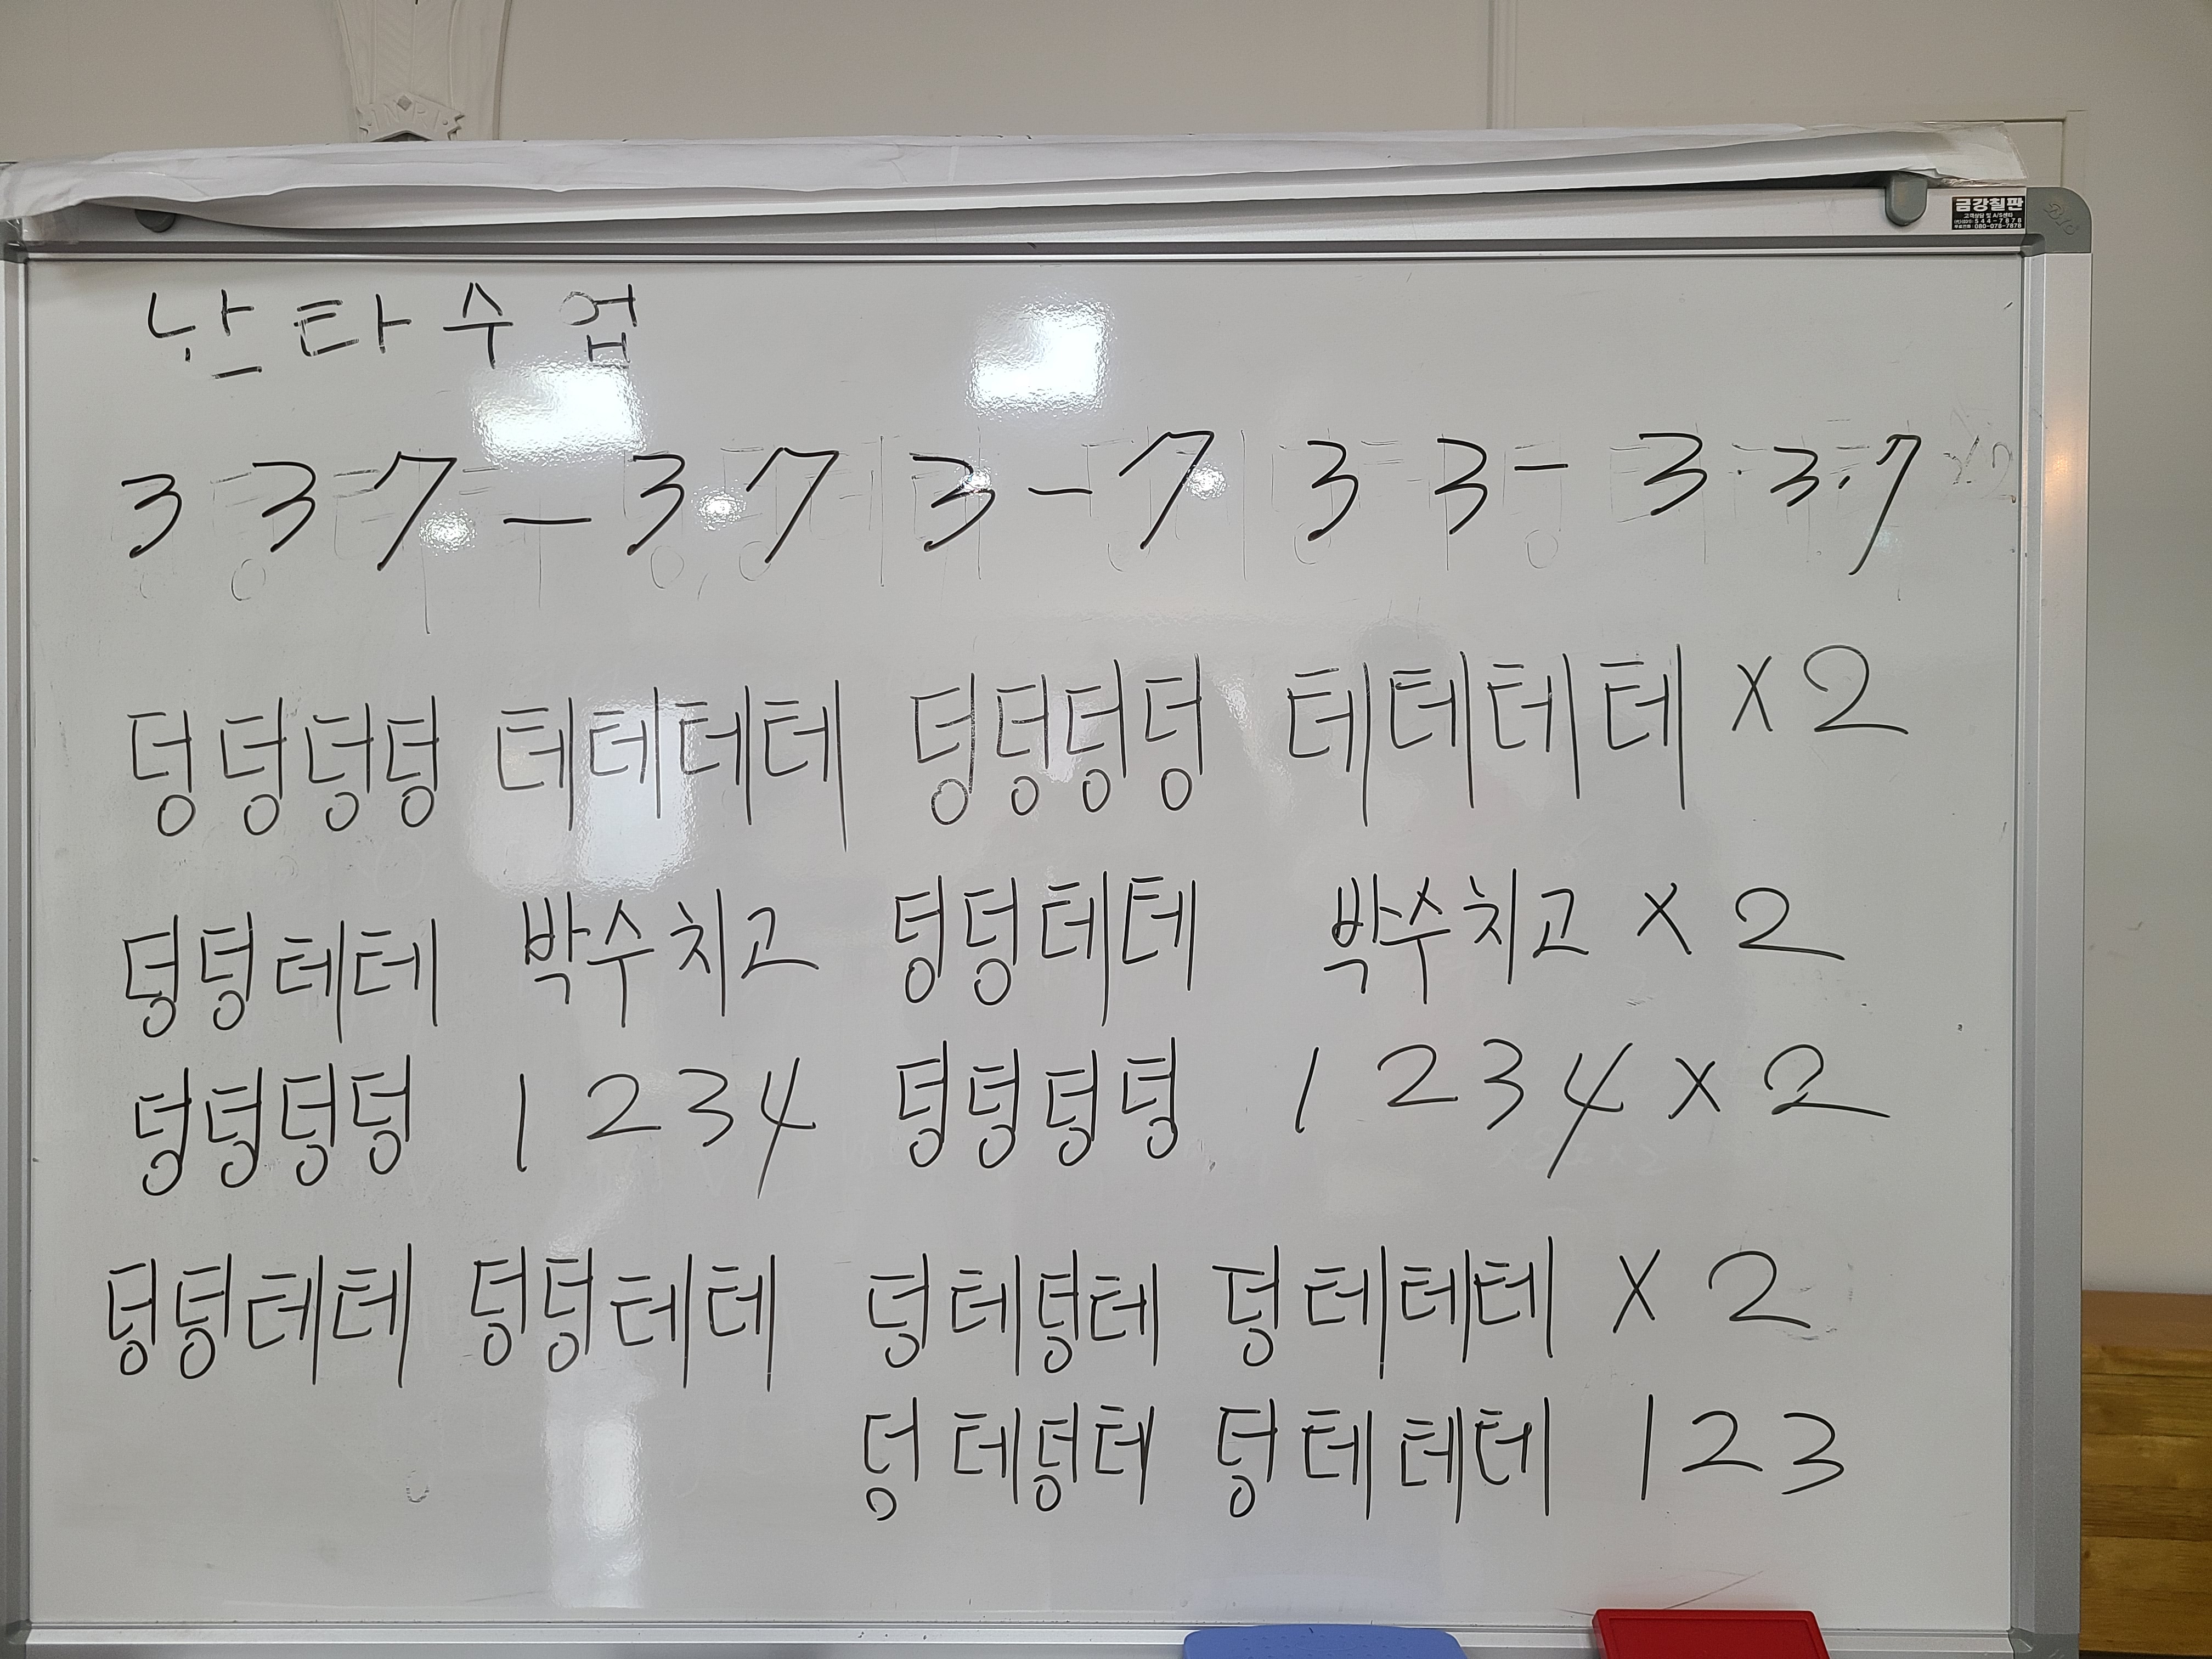 INRI
금강칠판
고객상담 및 A/S센타
544-7878
080-078-7878
난타수업
3 3 7 — 3 7 3 — 7 3 3 — 3 · 3 · 7
덩덩덩덩 테테테테 덩덩덩덩 테테테테 x 2
덩덩테테 박수치고 덩덩테테 박수치고 x 2
덩덩덩덩 1 2 3 4 덩덩덩덩 1 2 3 4 x 2
덩덩테테 덩덩테테 덩테덩테 덩테테테 x 2
덩테덩테 덩테테테 1 2 3